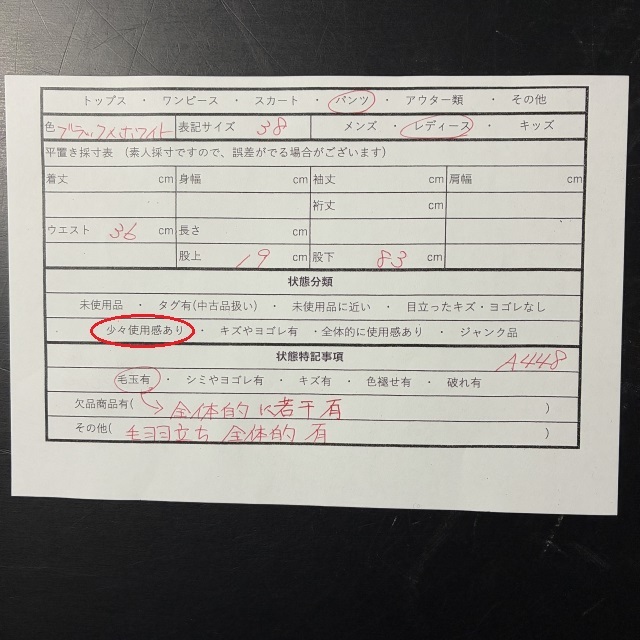 トップス ・ ワンピース ・ スカート ・ パンツ ・ アウター類 ・ その他
色 ブラック×ホワイト 表記サイズ 38 メンズ ・ レディース ・ キッズ
平置き採寸表 (素人採寸ですので、誤差がでる場合がございます)
着丈 cm 身幅 cm 袖丈 cm 肩幅 cm
裄丈 cm
ウエスト 36 cm 長さ cm
股上 19 cm 股下 83 cm
状態分類
未使用品 ・ タグ有(中古品扱い) ・ 未使用品に近い ・ 目立ったキズ・ヨゴレなし
少々使用感あり ・ キズやヨゴレ有 ・全体的に使用感あり ・ ジャンク品
状態特記事項 A448
毛玉有 ・ シミやヨゴレ有 ・ キズ有 ・ 色褪せ有 ・ 破れ有
欠品商品有( → 全体的に若干有 )
その他( 毛羽立ち 全体的 有 )